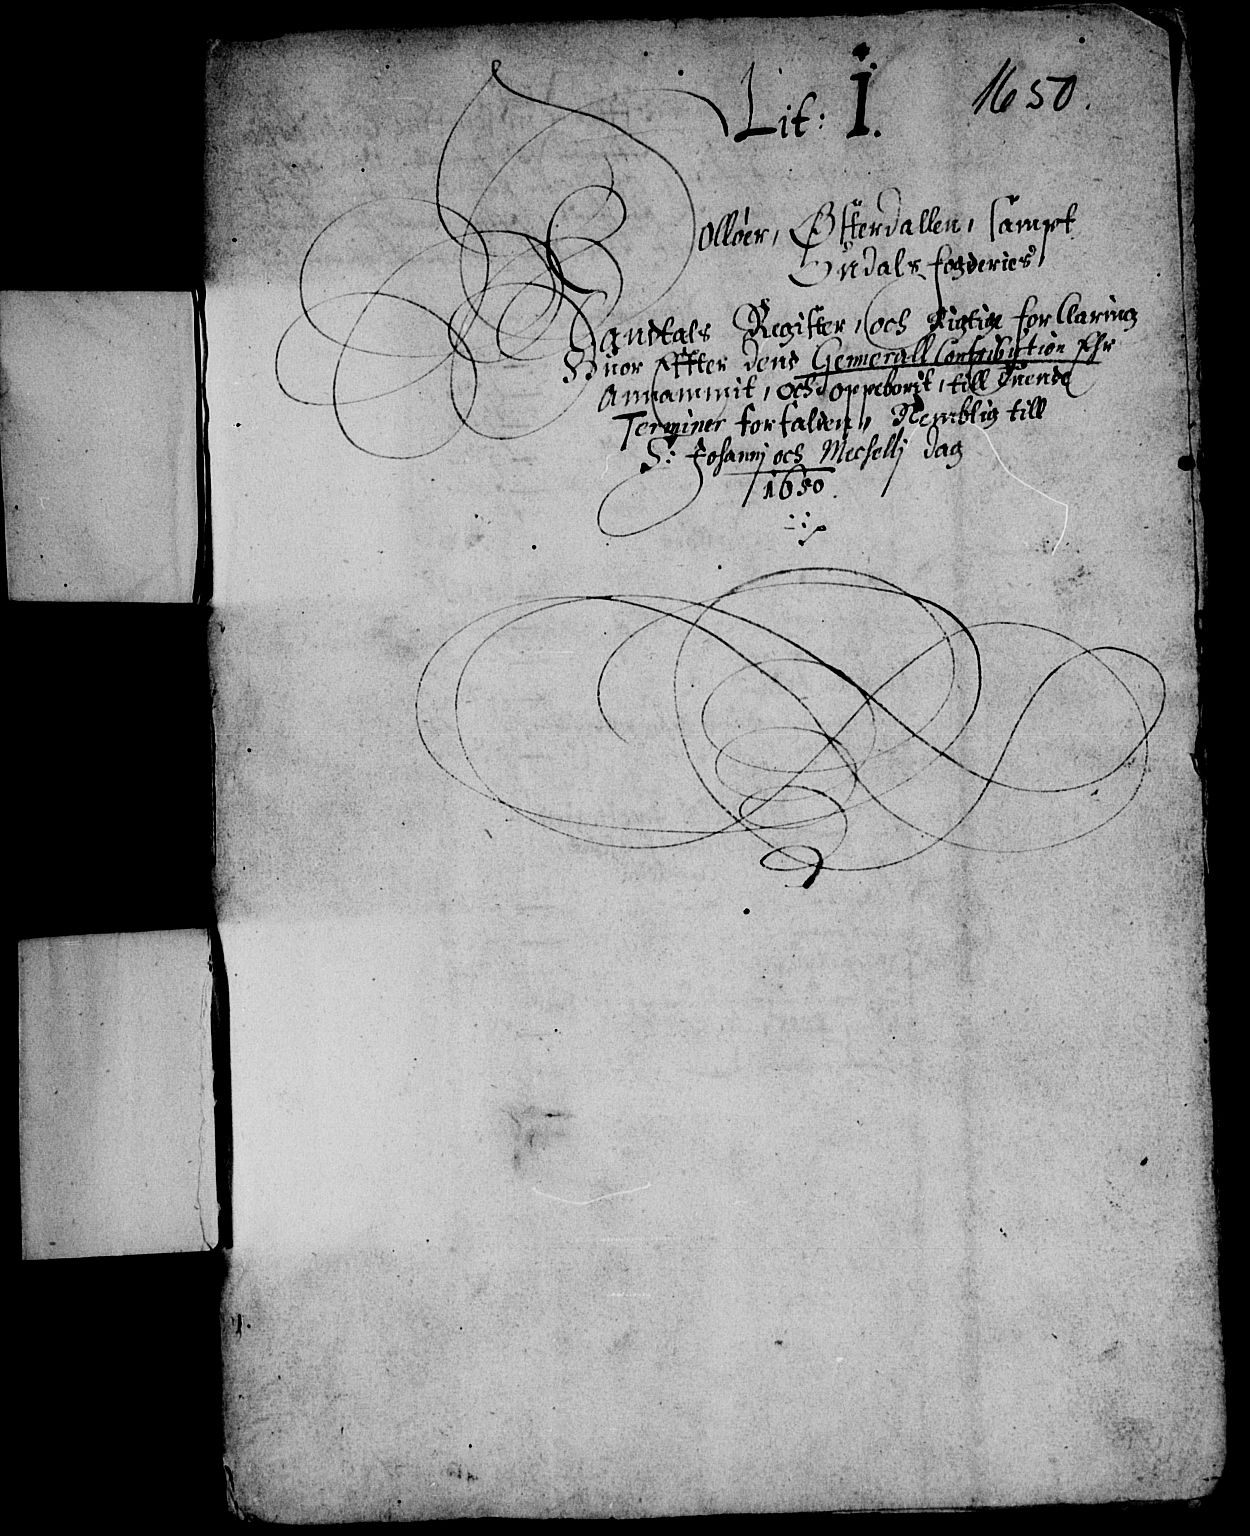 Lit: I. 1650.
Solløer, Østerdallen, sampt
Ordals fogderies,
Mandtals Register, och Rigtig forklaring
Huor Effter dend Gennerall Contribution Ehr
Annammit, och oppeborit, till tuende
Terminer forfalden, Nemblig till
S: Johannj och Mechellj dag
1650.